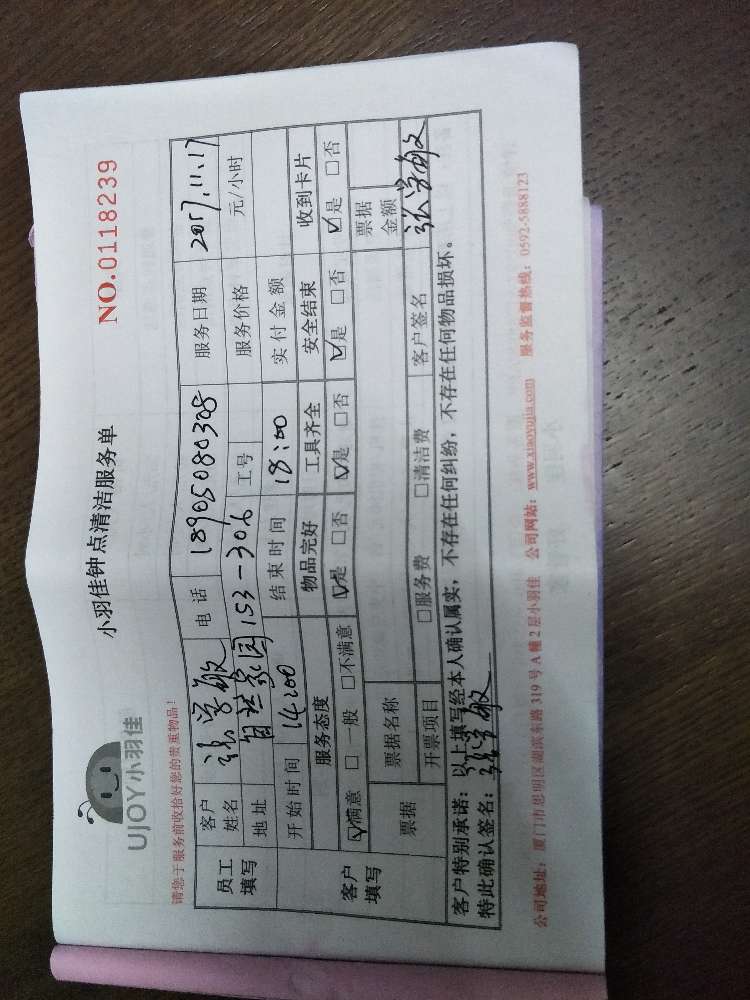 UJOY小羽佳
小羽佳钟点清洁服务单
NO.0118239
请您于服务前收拾好您的贵重物品!
员工填写 客户姓名 张学敏 电话 18905080308 服务日期 2017.11.17
地址 153-306 工号 服务价格 元/小时
开始时间 14:00 结束时间 18:00 实付金额
客户填写 服务态度 物品完好 工具齐全 安全结束 收到卡片
☑满意 □一般 □不满意 ☑是 □否 ☑是 □否 ☑是 □否 ☑是 □否
票据 票据名称 票据金额
开票项目 □服务费 □清洁费 客户签名 张学敏
客户特别承诺:以上填写经本人确认属实,不存在任何纠纷,不存在任何物品损坏。
特此确认签名:张学敏
公司地址:厦门市思明区湖滨东路319号A幢2层小羽佳 公司网站:www.xiaoyujia.com 服务监督热线:0592-5888123